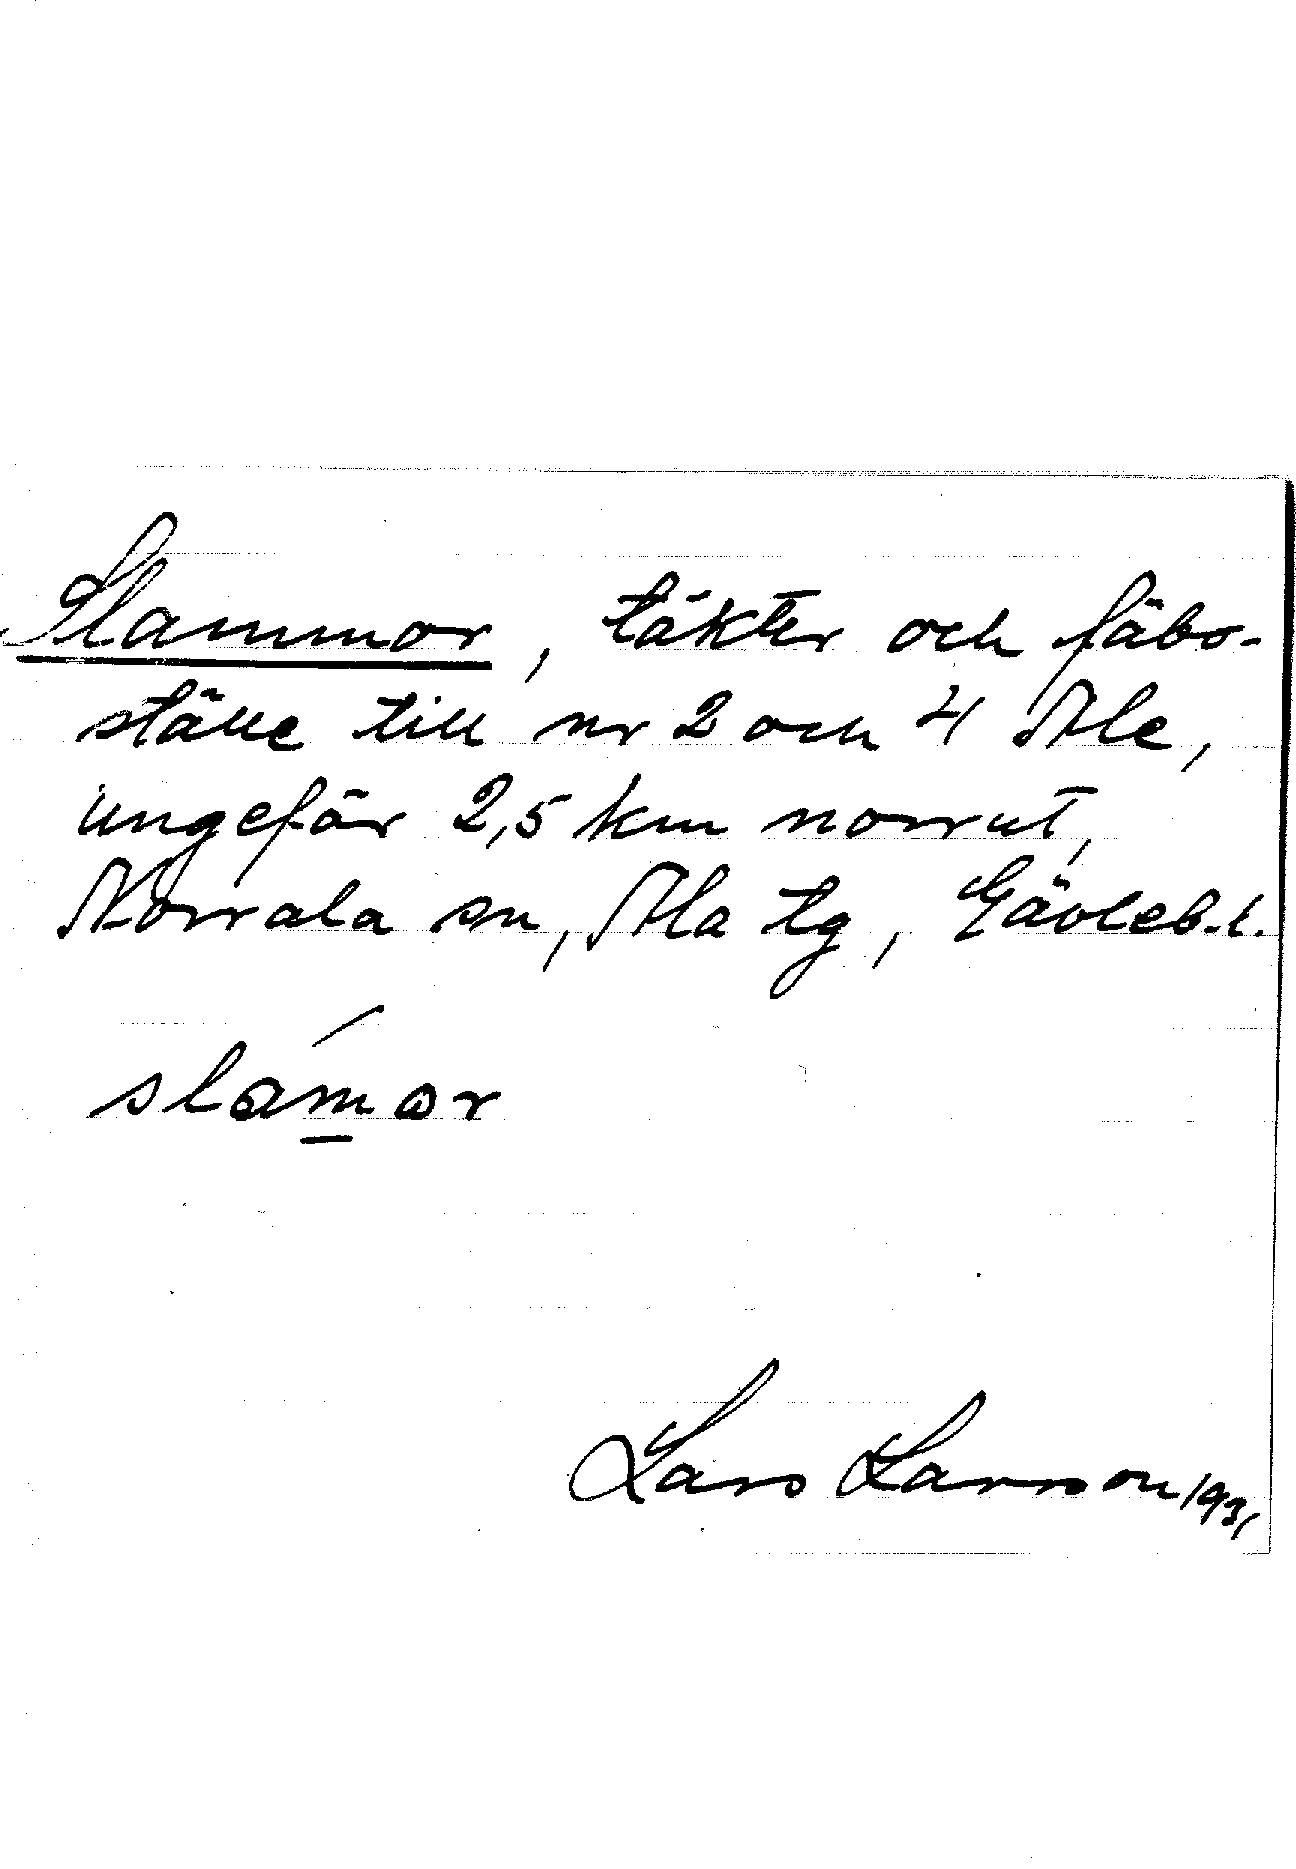 Slammor, täkter och fäbo-
ställe till nr 2 och 4 Ale,
ungefär 2,5 km norrut,
Norrala sn, Ala tg, Gävleb.l.
slámor
Lars Larsson 1931